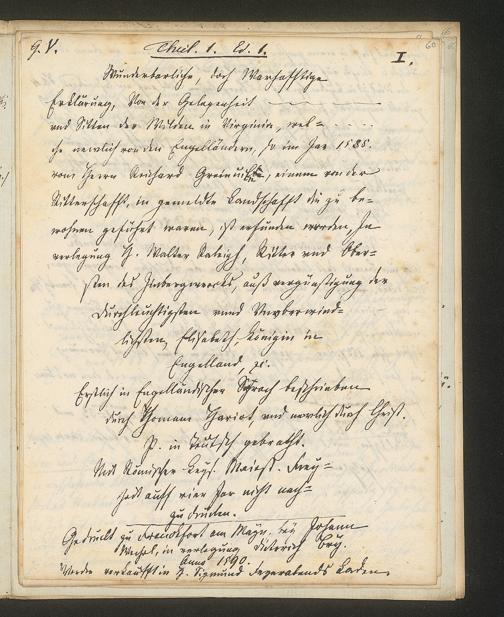 G. V. Theil. 1. Ed. 1. I.
Wunderbarliche, doch Warhafftige
Erklärung, Von der Gelegenheit
vnd Sitten der Wilden in Virginia, wel=
che newlich von den Engelländern, so im Jar 1585.
vom Herrn Reichard Greinuile, einem von der
Ritterschafft, in gemeldte Landschafft die zu be=
wohnen geführt waren, ist erfunden worden, In
verlegung H. Walter Raleigh, Ritter vnd Ober=
sten des Zinbergwercks, auß vergünstigung der
Durchleuchtigsten vnnd Vnvberwind=
lichsten, Elisabeth, Königin in
Engelland, ꝛc.
Erstlich in Engelländischer Sprach beschrieben
durch Thomam Hariot, vnd newlich durch Christ.
P. in Teutsch gebracht.
Mit Römischer Keys. Maiest. Frey=
heit auff vier Jar nicht nach=
zudrucken.
Gedruckt zu Franckfort am Mayn, bey Johann
Wechel, in verlegung Dieterich Bry.
Anno 1590.
Werden verkaufft in H. Sigmund Feyerabends Laden